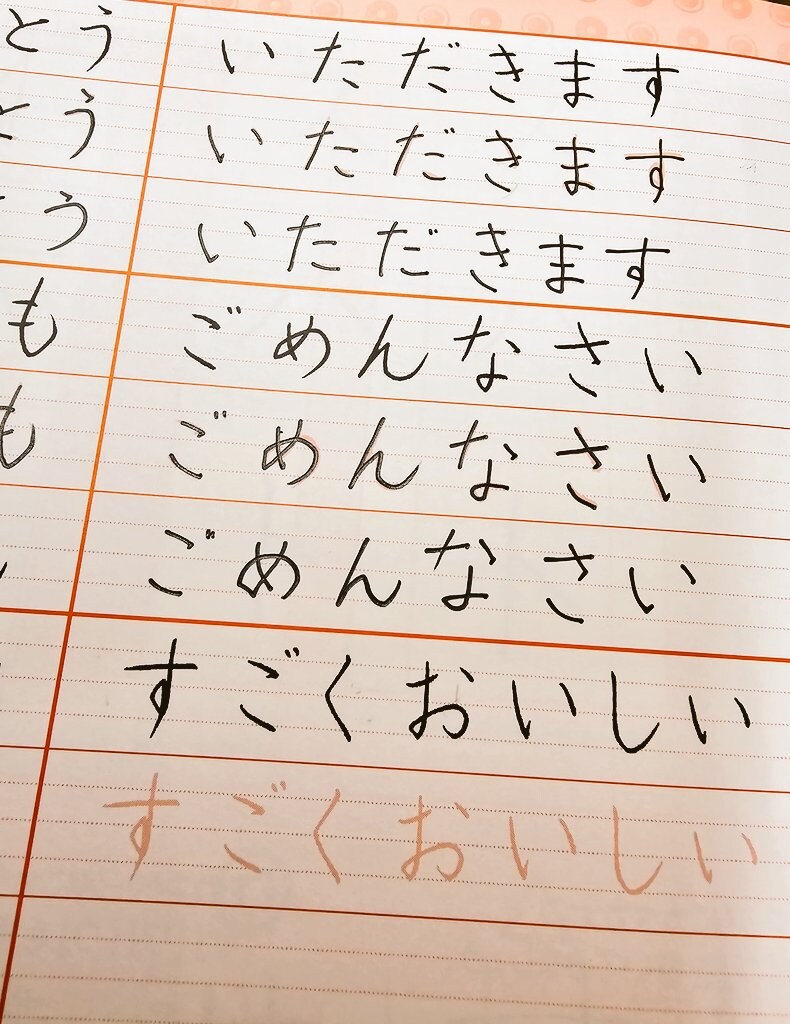 とう いただきます
とう いただきます
う いただきます
も ごめんなさい
も ごめんなさい
ごめんなさい
すごくおいしい
すごくおいしい